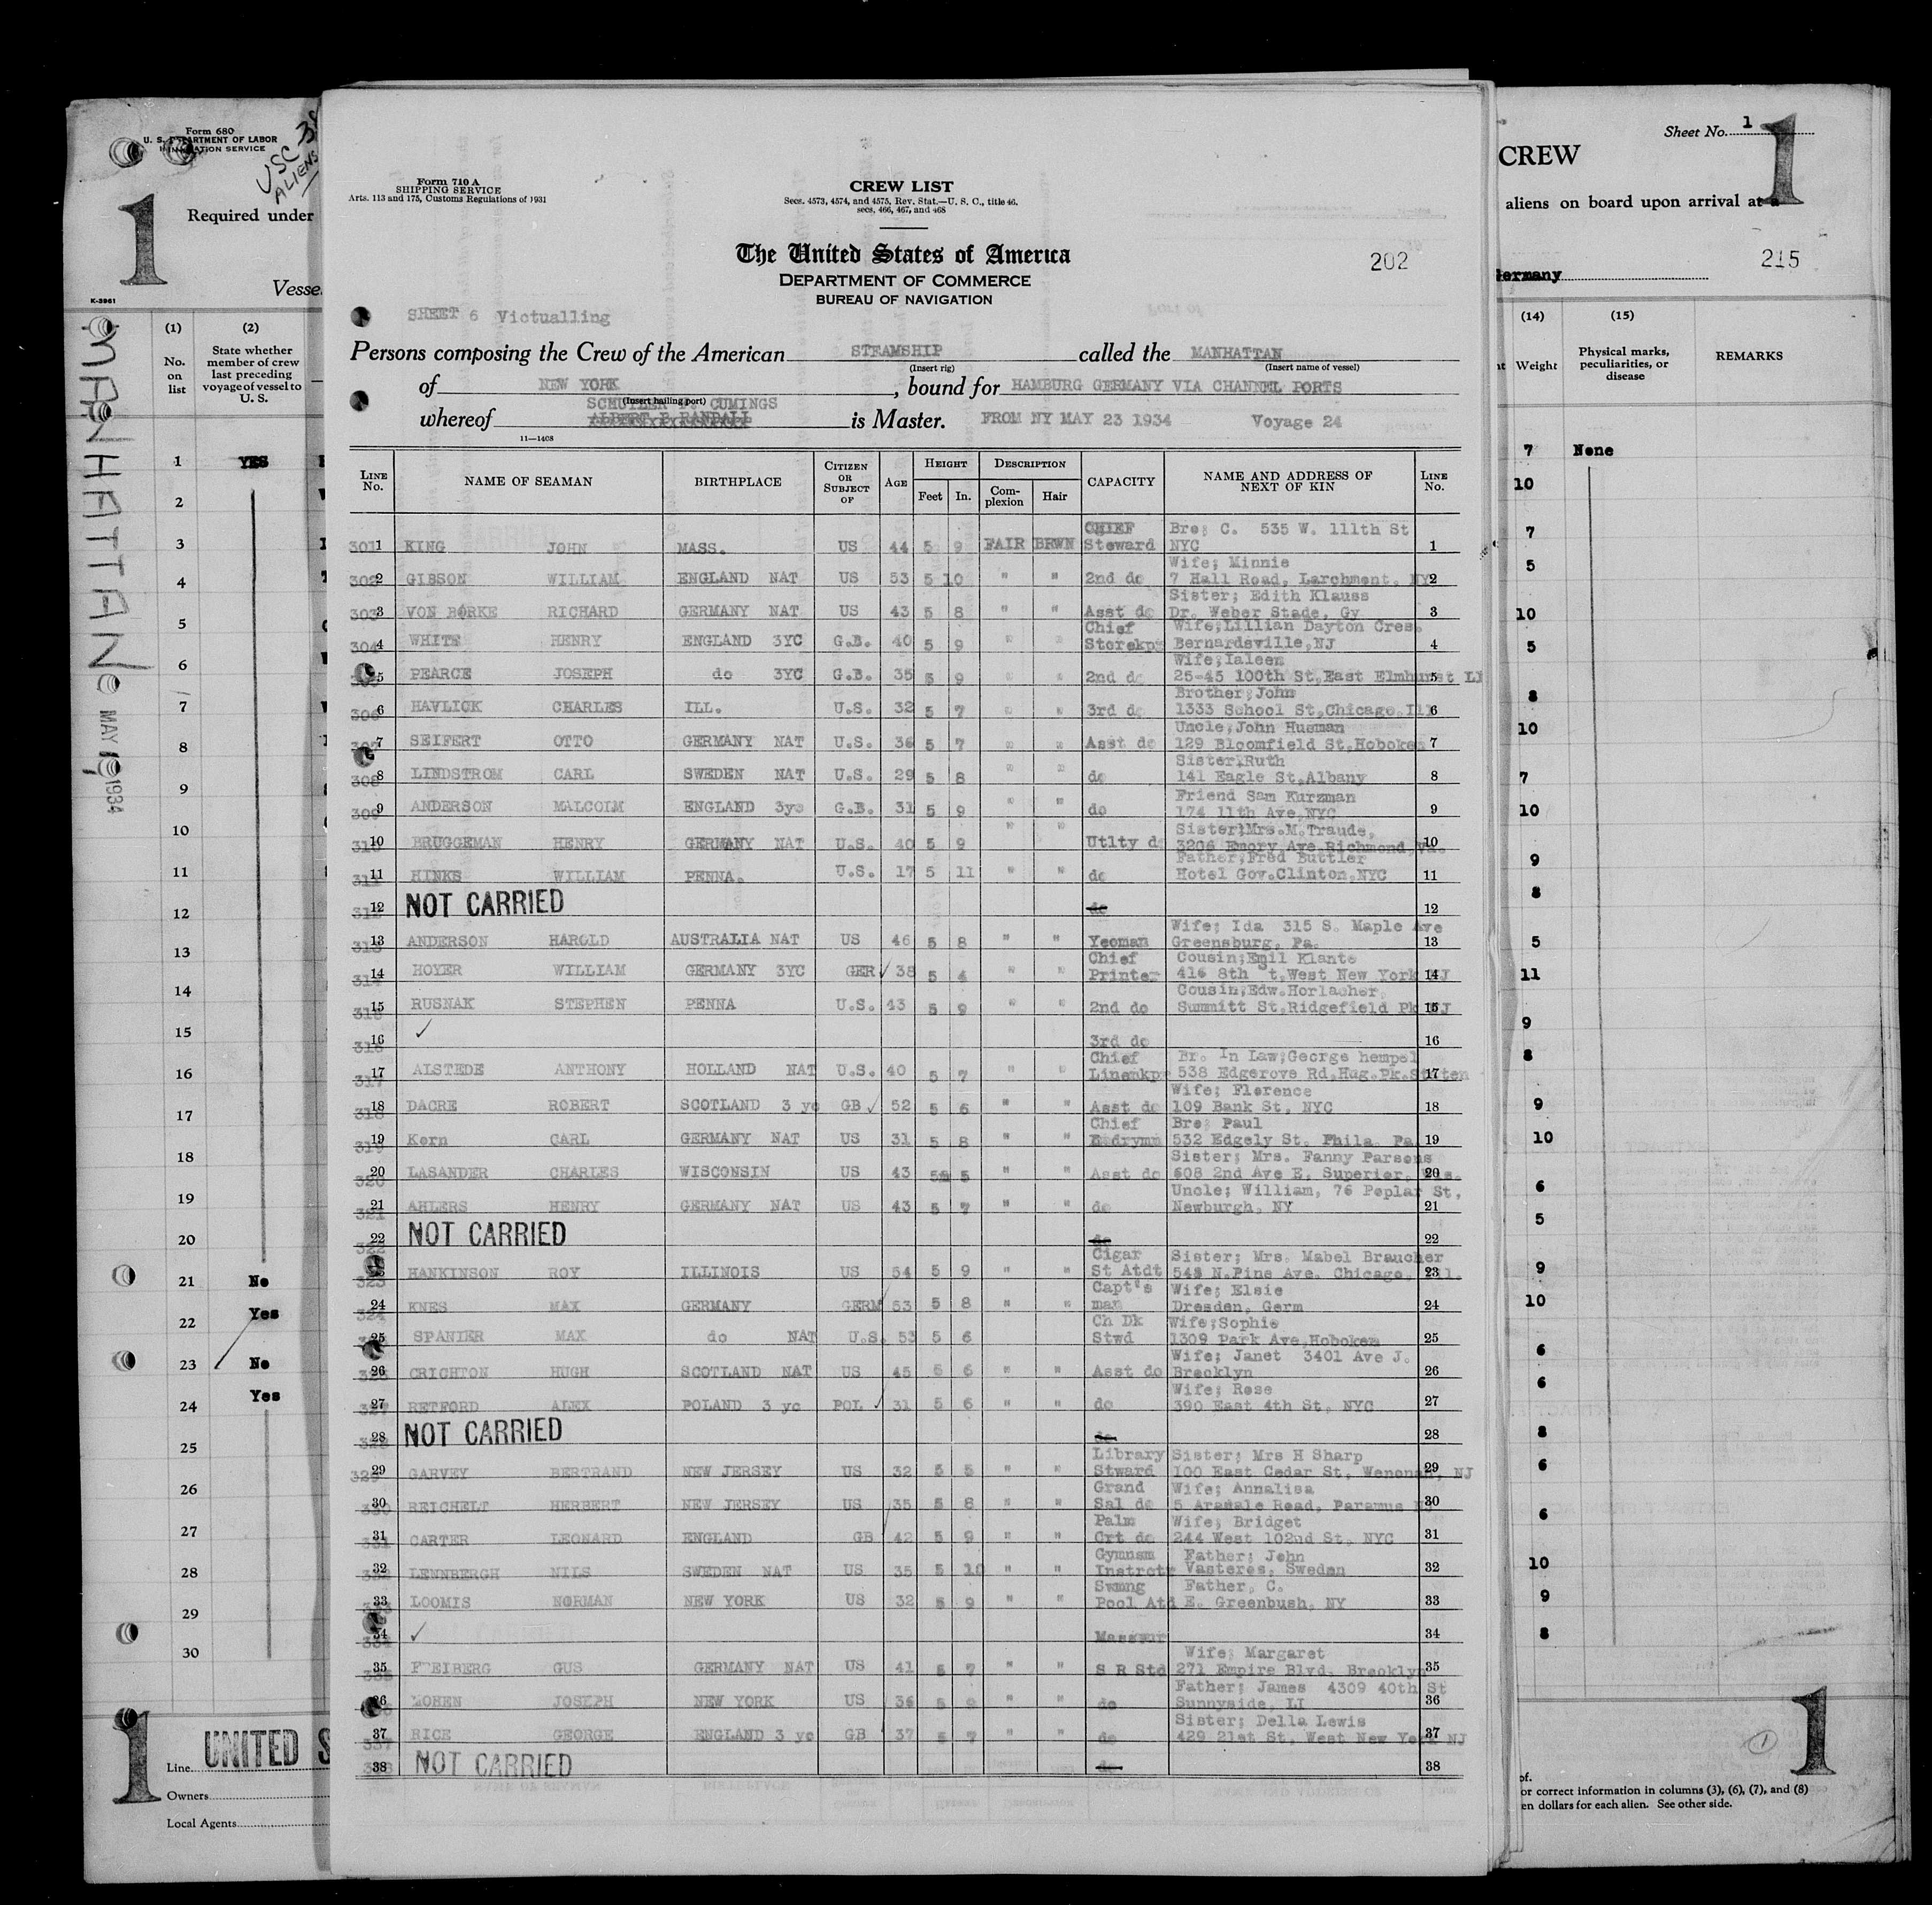 Form 680
U. S. DEPARTMENT OF LABOR
IMMIGRATION SERVICE
USC-38
ALIENS
1
Required under
Vessel
K-3961
(1) (2)
No. on list
State whether member of crew last preceding voyage of vessel to U. S.
MANHATTAN
MAY 1934
1 YES
2
3
4
5
6
7
8
9
10
11
12
13
14
15
16
17
18
19
20
21 No
22 Yes
23 No
24 Yes
25
26
27
28
29
30
1
UNITED S
Line
Owners
Local Agents
Form 710 A
SHIPPING SERVICE
Arts. 113 and 175, Customs Regulations of 1931
CREW LIST
Secs. 4573, 4574, and 4575, Rev. Stat.—U. S. C., title 46,
secs. 466, 467, and 468
The United States of America
DEPARTMENT OF COMMERCE
BUREAU OF NAVIGATION
202
SHEET 6 Victualling
Persons composing the Crew of the American STEAMSHIP called the MANHATTAN
(Insert rig) (Insert name of vessel)
of NEW YORK, bound for HAMBURG GERMANY VIA CHANNEL PORTS
(Insert hailing port)
SCHUYLER F. CUMINGS
whereof ALBERT B RANDALL is Master. FROM NY MAY 23 1934 Voyage 24
11—1408
LINE No. NAME OF SEAMAN BIRTHPLACE CITIZEN OR SUBJECT OF AGE HEIGHT Feet In. DESCRIPTION Complexion Hair CAPACITY NAME AND ADDRESS OF NEXT OF KIN LINE No.
301 1 KING JOHN MASS. US 44 5 9 FAIR BRWN CHIEF Steward Bro; C. 535 W. 111th St NYC 1
302 2 GIBSON WILLIAM ENGLAND NAT US 53 5 10 " " 2nd do Wife; Minnie 7 Hall Road, Larchmont, NY 2
303 3 VON BORKE RICHARD GERMANY NAT US 43 5 8 " " Asst do Sister; Edith Klauss Dr. Weber Stade, Gy 3
304 4 WHITE HENRY ENGLAND 3YC G.B. 40 5 9 " " Chief Storekpr Wife;Lillian Dayton Cres. Bernardsville,NJ 4
5 PEARCE JOSEPH do 3YC G.B. 35 5 9 " " 2nd do Wife;Ialeen 25-45 100th St,East Elmhurst LI 5
306 6 HAVLICK CHARLES ILL. U.S. 32 5 7 " " 3rd do Brother;John 1333 School St,Chicago,Ill 6
307 7 SEIFERT OTTO GERMANY NAT U.S. 36 5 7 " " Asst do Uncle;John Husman 129 Bloomfield St,Hoboken 7
308 8 LINDSTROM CARL SWEDEN NAT U.S. 29 5 8 " " do Sister;Ruth 141 Eagle St,Albany 8
309 9 ANDERSON MALCOLM ENGLAND 3yc G.B. 31 5 9 " " do Friend Sam Kurzman 174 11th Ave,NYC 9
310 10 BRUGGEMAN HENRY GERMANY NAT U.S. 40 5 9 " " Utlty do Sister;Mrs.M.Traude, 3206 Emory Ave.Richmond,Va. 10
311 11 HINKS WILLIAM PENNA. U.S. 17 5 11 " " do Father;Fred Buttler Hotel Gov.Clinton,NYC 11
312 12 NOT CARRIED do 12
313 13 ANDERSON HAROLD AUSTRALIA NAT US 46 5 8 " " Yeoman Wife; Ida 315 S. Maple Ave Greensburg, Pa. 13
314 14 HOYER WILLIAM GERMANY 3YC GER ✓ 38 5 4 " " Chief Printer Cousin;Emil Klante 416 8th St,West New York NJ 14
315 15 RUSNAK STEPHEN PENNA U.S. 43 5 9 " " 2nd do Cousin,Edw.Horlacher, Summitt St,Ridgefield Pk NJ 15
316 16 ✓ 3rd do 16
317 17 ALSTEDE ANTHONY HOLLAND NAT U.S. 40 5 7 " " Chief Linenkpr Br. In Law;George hempel 538 Edgerove Rd,Hug.Pk.Staten 17
318 18 DACRE ROBERT SCOTLAND 3 yc GB ✓ 52 5 6 " " Asst do Wife; Florence 109 Bank St, NYC 18
319 19 Kern CARL GERMANY NAT US 31 5 8 " " Chief Bro; Paul 532 Edgely St. Phila. Pa. 19
320 20 LASANDER CHARLES WISCONSIN US 43 5 5 " " Asst do Sister; Mrs. Fanny Parsons 608 2nd Ave E. Superior, Wis. 20
321 21 AHLERS HENRY GERMANY NAT US 43 5 7 " " do Uncle; William, 76 Poplar St, Newburgh, NY 21
322 22 NOT CARRIED do 22
323 23 HANKINSON ROY ILLINOIS US 54 5 9 " " Cigar St Atdt Sister; Mrs. Mabel Braucher 548 N.Pine Ave. Chicago, Ill. 23
324 24 KNES MAX GERMANY GERM 53 5 8 " " Capt's man Wife; Elsie Dresden, Germ 24
25 SPANIER MAX do NAT U.S. 53 5 6 Ch Dk Stwd Wife;Sophie 1309 Park Ave,Hoboken 25
326 26 CRICHTON HUGH SCOTLAND NAT US 45 6 6 " " Asst do Wife; Janet 3401 Ave J. Brooklyn 26
327 27 RETFORD ALEX POLAND 3 yc POL ✓ 31 5 6 " " do Wife; Rose 390 East 4th St, NYC 27
328 28 NOT CARRIED do 28
329 29 GARVEY BERTRAND NEW JERSEY US 32 5 5 " " Library Stward Sister; Mrs H Sharp 100 East Cedar St, Wenonah, NJ 29
330 30 REICHELT HERBERT NEW JERSEY US 35 5 8 " " Grand Sal do Wife; Annalisa 5 Road, Paramus NJ 30
331 31 CARTER LEONARD ENGLAND GB 42 5 9 " " Palm Crt do Wife; Bridget 244 West 102nd St, NYC 31
332 32 LENNBERGH NILS SWEDEN NAT US 35 5 10 " " Gymnsm Instrctr Father; John Vasteres, Sweden 32
333 33 LOOMIS NORMAN NEW YORK US 32 5 9 " " Swmng Pool Atd Father, C. E. Greenbush, NY 33
334 34 ✓ 34
335 35 FREIBERG GUS GERMANY NAT US 41 5 7 " " S R Std Wife; Margaret 271 Empire Blvd, Brooklyn 35
36 MOHEN JOSEPH NEW YORK US 36 5 9 " " do Father; James 4309 40th St Sunnyside, LI 36
337 37 RICE GEORGE ENGLAND 3 yc GB 37 5 7 " " do Sister; Della Lewis 429 21st St, West New York NJ 37
38 NOT CARRIED do 38
Sheet No. 1
1
CREW
aliens on board upon arrival at a
Germany
215
(14) (15)
Weight
Physical marks, peculiarities, or disease
REMARKS
7 None
10
7
5
10
5
8
10
7
10
9
8
5
11
9
8
9
10
6
5
9
10
6
6
8
6
6
10
9
8
1
1
of.
or correct information in columns (3), (6), (7), and (8)
en dollars for each alien. See other side.